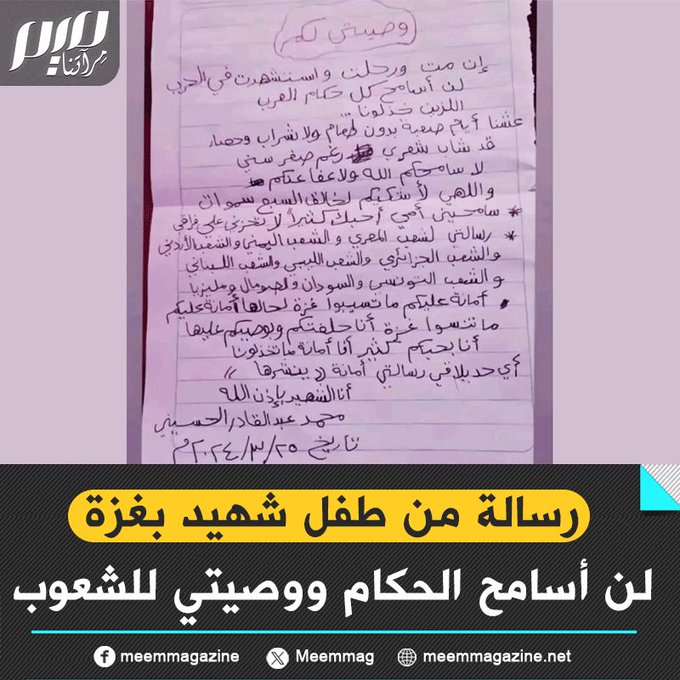 ميم
مرآتنا
وصيتي لكم
إن مت ورحلت واستشهدت في الحرب
لن أسامح كل حكام العرب
اللزين خذلونا...
عشنا أيام صعبة بدون طعام ولا شراب وحصار
قد شاب شعري رغم صغر سني
لا سامحكم الله ولا عفا عنكم
واللهي لأشكيكم لخالق السبع سموات
* سامحيني أمي أحبك كثيراً لا تحزني علي فراقي
* رسالتي لشعب المصري والشعب اليمني والشعب الأردني
والشعب الجزائري والشعب الليبي ولشعب اللبناني
والشعب التونسي والسودان ولصومال ومليزيا
أمانة عليكم ما تسيبوا غزة لحالها أمانة عليكم
ما تنسوا غزة أنا حلفتكم وبوصيكم عليها
أنا بحبكم كثير أمانة ما تخذلونا
أي حد يلاقي رسالتي أمانة (( ينشرها ))
أنا الشهيد بإذن الله
محمد عبد القادر الحسيني
تاريخ ٢٥/٣/٢٠٢٤م
رسالة من طفل شهيد بغزة
لن أسامح الحكام ووصيتي للشعوب
meemmagazine Meemmag meemmagazine.net